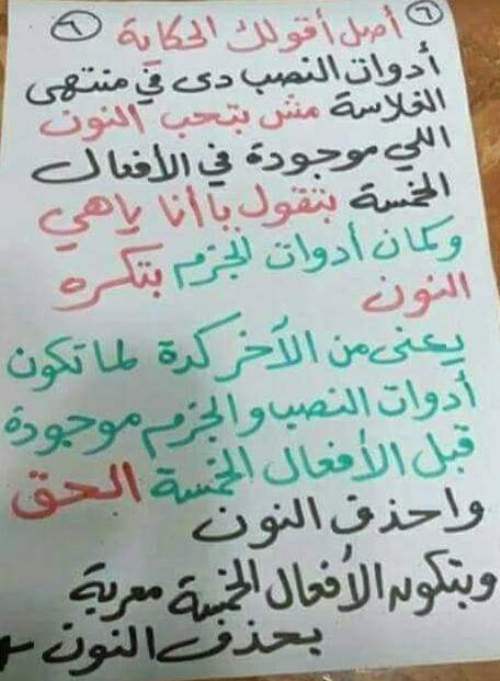 ٦ أصل أقولك الحكاية ٦
أدوات النصب دى في منتهى
الغلاسة مش بتحب النون
اللي موجودة في الأفعال
الخمسة بتقول يا أنا يا هي
وكمان أدوات الجزم بتكره
النون
يعنى من الآخر كدة لما تكون
أدوات النصب والجزم موجودة
قبل الأفعال الخمسة الحق
واحذف النون
وبتكون الأفعال الخمسة معربة
بحذف النون